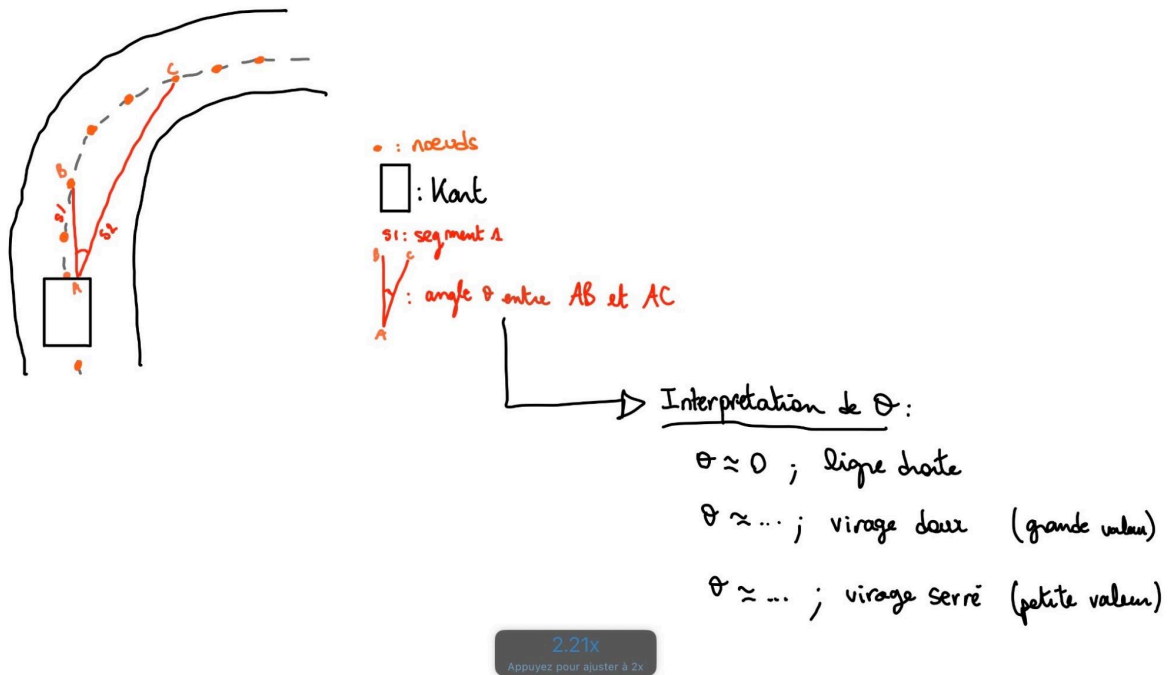 C
B
S1
S2
A
• : noeuds
: Kart
S1 : segment 1
B C
: angle θ entre AB et AC
A
Interprétation de θ :
θ ≈ 0 ; ligne droite
θ ≈ ... ; virage doux (grande valeur)
θ ≈ ... ; virage serré (petite valeur)
2.21x
Appuyez pour ajuster à 2x